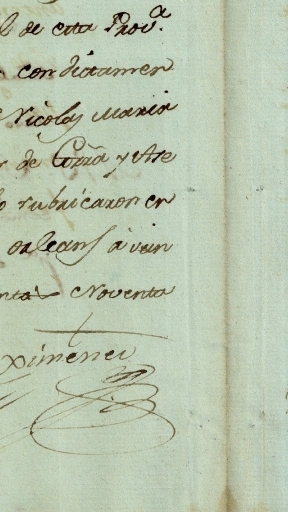 l de esta Prov.ª
con dictamen
Nicolas Maria
r de Grra y Ase
o rubricaron en
orleans á vein
enta y Noventa
Ximenez